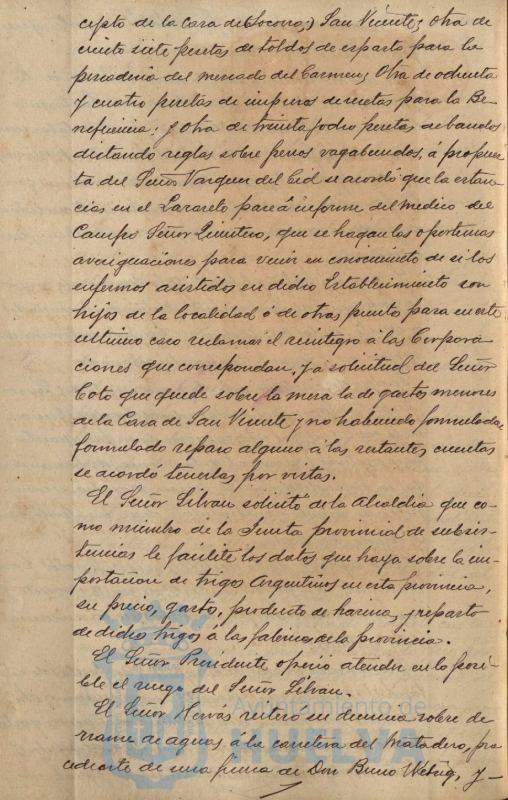 cepto de la Casa de Socorro, San Vicente; otra de
ciento siete pesetas de toldos de esparto para la
pescadería del mercado del Carmen; Otra de ochenta
y cuatro pesetas de impresos de recetas para la Be-
neficencia; y otra de treinta y ocho pesetas de bandos
dictando reglas sobre perros vagabundos, á propues-
ta del Señor Vazquez del Cid se acordó que la estan-
cias en el Lazareto pase á informe del medico del
Campo Señor Quintero, que se hagan las oportunas
averiguaciones para venir en conocimiento de si los
enfermos asistidos en dicho Establecimiento son
hijos de la localidad ó de otros puntos para en este
ultimo caso reclamar el reintegro á las Corpora-
ciones que correspondan, y á solicitud del Señor
Coto que quede sobre la mesa la de gastos menores
de la Casa de San Vicente y no habiendo formulado
formulado reparo alguno á las restantes cuentas
se acordó tenerlas por vistas.
El Señor Silvan solicitó de la Alcaldia que co-
mo miembro de la Junta provincial de subsis-
tencias le facilite los datos que haya sobre la im-
portacion de trigos Argentinos en esta provincia,
su precio, gastos, producto de harina, y reparto
de dichos trigos á las fabricas de la provincia.
El Señor Presidente ofreció atender en lo posi-
ble el ruego del Señor Silvan.
El Señor Hervás reiteró su denuncia sobre de
rrame de aguas á la carretera del Matadero, pro
cedente de una finca de Don Bruno Wetzig, y
Ayuntamiento de
HUELVA